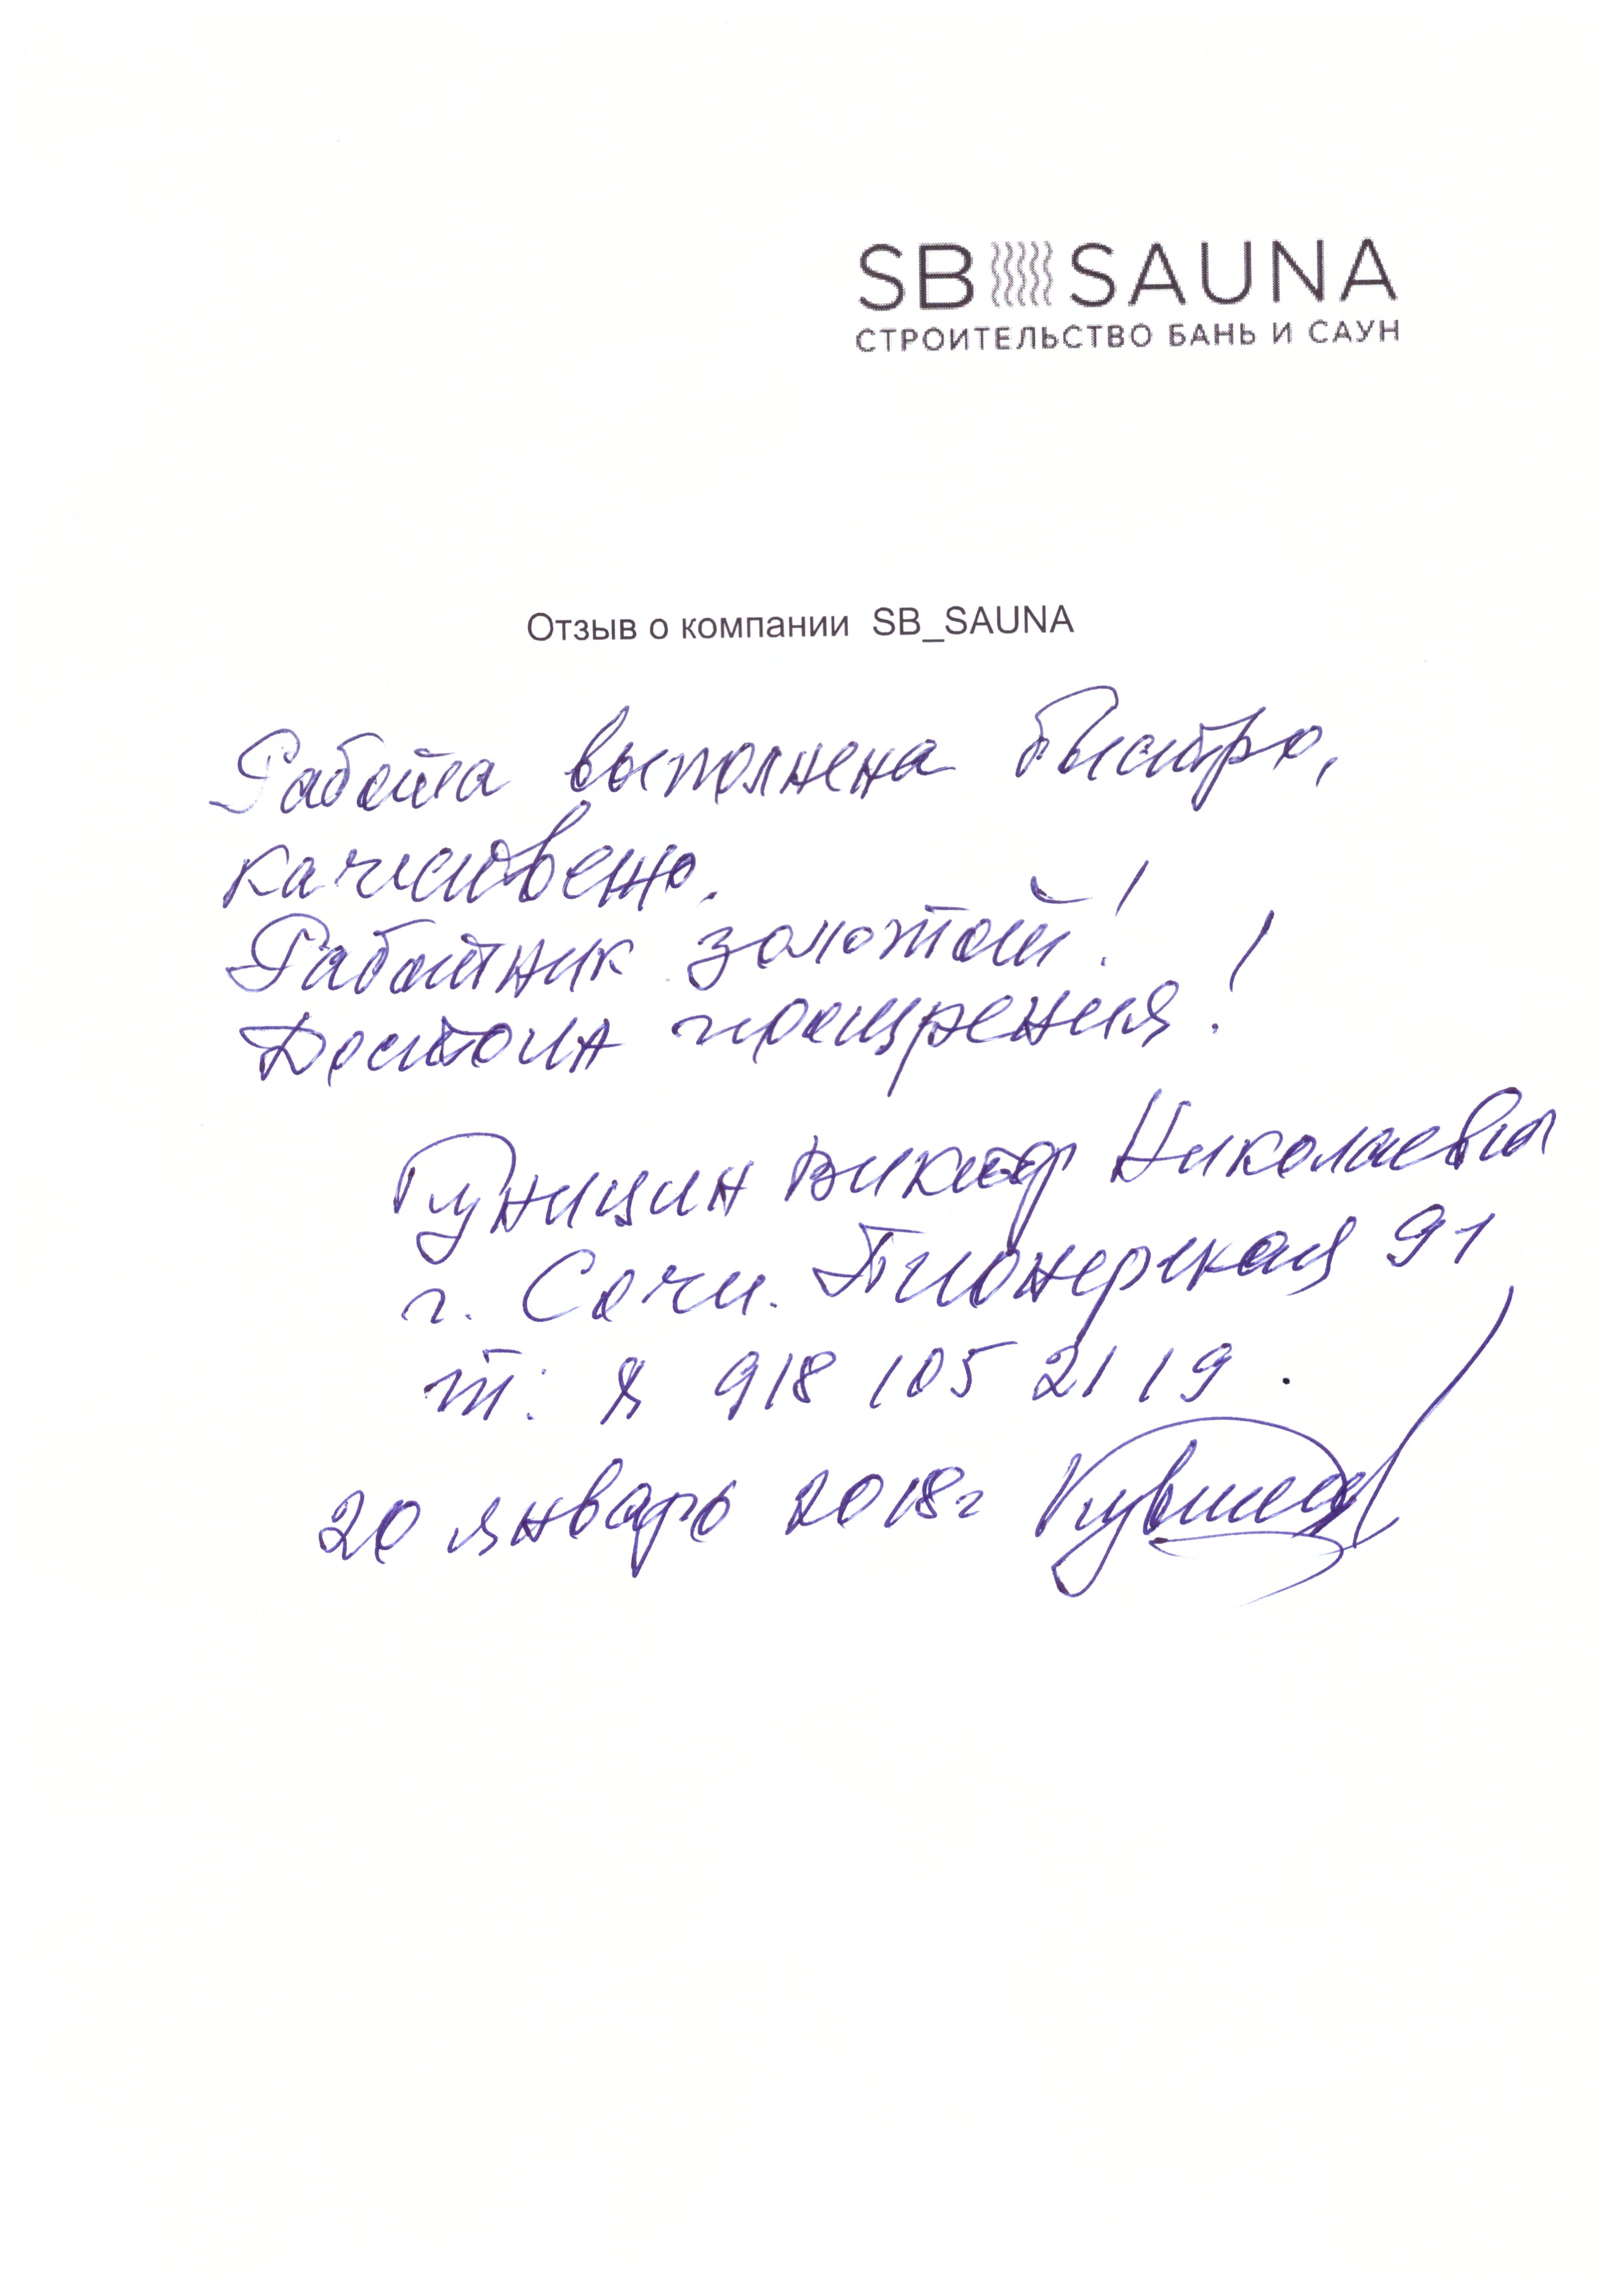 SB SAUNA
СТРОИТЕЛЬСТВО БАНЬ И САУН
Отзыв о компании SB_SAUNA
Работа выполнена быстро,
качественно.
Работник золотой!
Достоин поощрения!
Виктор Николаевич
г. Сочи. Пионерская 91
т: 8 918 105 21 19.
20 январь 2018г